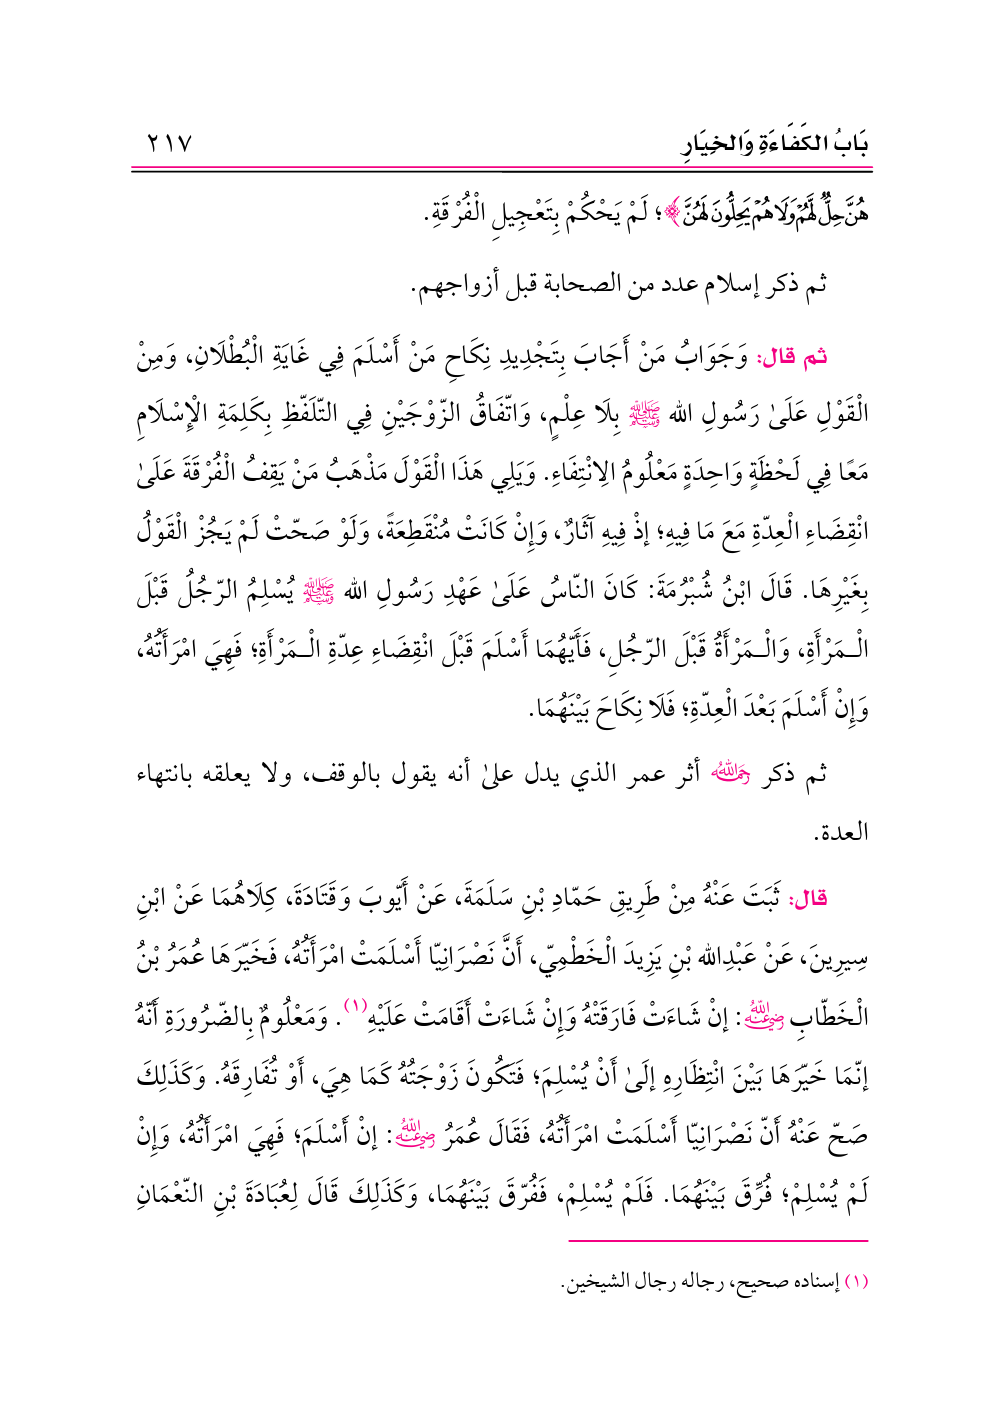 بَابُ الكَفَاءَةِ وَالخِيَارِ ٢١٧
هُنَّ حِلٌّ لَّهُمْ وَلَا هُمْ يَحِلُّونَ لَهُنَّ﴾؛ لَمْ يَحْكُمْ بِتَعْجِيلِ الْفُرْقَةِ.
ثم ذكر إسلام عدد من الصحابة قبل أزواجهم.
ثم قال: وَجَوَابُ مَنْ أَجَابَ بِتَجْدِيدِ نِكَاحِ مَنْ أَسْلَمَ فِي غَايَةِ الْبُطْلَانِ، وَمِنْ
الْقَوْلِ عَلَىٰ رَسُولِ الله ﷺ بِلَا عِلْمٍ، وَاتّفَاقُ الزّوْجَيْنِ فِي التّلَفّظِ بِكَلِمَةِ الْإِسْلَامِ
مَعًا فِي لَحْظَةٍ وَاحِدَةٍ مَعْلُومُ الِانْتِفَاءِ. وَيَلِي هَذَا الْقَوْلَ مَذْهَبُ مَنْ يَقِفُ الْفُرْقَةَ عَلَىٰ
انْقِضَاءِ الْعِدّةِ مَعَ مَا فِيهِ؛ إذْ فِيهِ آثَارٌ، وَإِنْ كَانَتْ مُنْقَطِعَةً، وَلَوْ صَحّتْ لَمْ يَجُزْ الْقَوْلُ
بِغَيْرِهَا. قَالَ ابْنُ شُبْرُمَةَ: كَانَ النّاسُ عَلَىٰ عَهْدِ رَسُولِ الله ﷺ يُسْلِمُ الرّجُلُ قَبْلَ
الْـمَرْأَةِ، وَالْـمَرْأَةُ قَبْلَ الرّجُلِ، فَأَيّهُمَا أَسْلَمَ قَبْلَ انْقِضَاءِ عِدّةِ الْـمَرْأَةِ؛ فَهِيَ امْرَأَتُهُ،
وَإِنْ أَسْلَمَ بَعْدَ الْعِدّةِ؛ فَلَا نِكَاحَ بَيْنَهُمَا.
ثم ذكر رَحِمَهُ اللهُ أثر عمر الذي يدل علىٰ أنه يقول بالوقف، ولا يعلقه بانتهاء
العدة.
قال: ثَبَتَ عَنْهُ مِنْ طَرِيقِ حَمّادِ بْنِ سَلَمَةَ، عَنْ أَيّوبَ وَقَتَادَةَ، كِلَاهُمَا عَنْ ابْنِ
سِيرِينَ، عَنْ عَبْدِالله بْنِ يَزِيدَ الْخَطْمِيّ، أَنَّ نَصْرَانِيّا أَسْلَمَتْ امْرَأَتُهُ، فَخَيّرَهَا عُمَرُ بْنُ
الْخَطّابِ رَضِيَ اللهُ عَنْهُ: إنْ شَاءَتْ فَارَقَتْهُ وَإِنْ شَاءَتْ أَقَامَتْ عَلَيْهِ(١). وَمَعْلُومٌ بِالضّرُورَةِ أَنّهُ
إنّمَا خَيّرَهَا بَيْنَ انْتِظَارِهِ إلَىٰ أَنْ يُسْلِمَ؛ فَتَكُونَ زَوْجَتُهُ كَمَا هِيَ، أَوْ تُفَارِقَهُ. وَكَذَلِكَ
صَحّ عَنْهُ أَنّ نَصْرَانِيّا أَسْلَمَتْ امْرَأَتُهُ، فَقَالَ عُمَرُ رَضِيَ اللهُ عَنْهُ: إنْ أَسْلَمَ؛ فَهِيَ امْرَأَتُهُ، وَإِنْ
لَمْ يُسْلِمْ؛ فُرِّقَ بَيْنَهُمَا. فَلَمْ يُسْلِمْ، فَفُرّقَ بَيْنَهُمَا، وَكَذَلِكَ قَالَ لِعُبَادَةَ بْنِ النّعْمَانِ
(١) إسناده صحيح، رجاله رجال الشيخين.